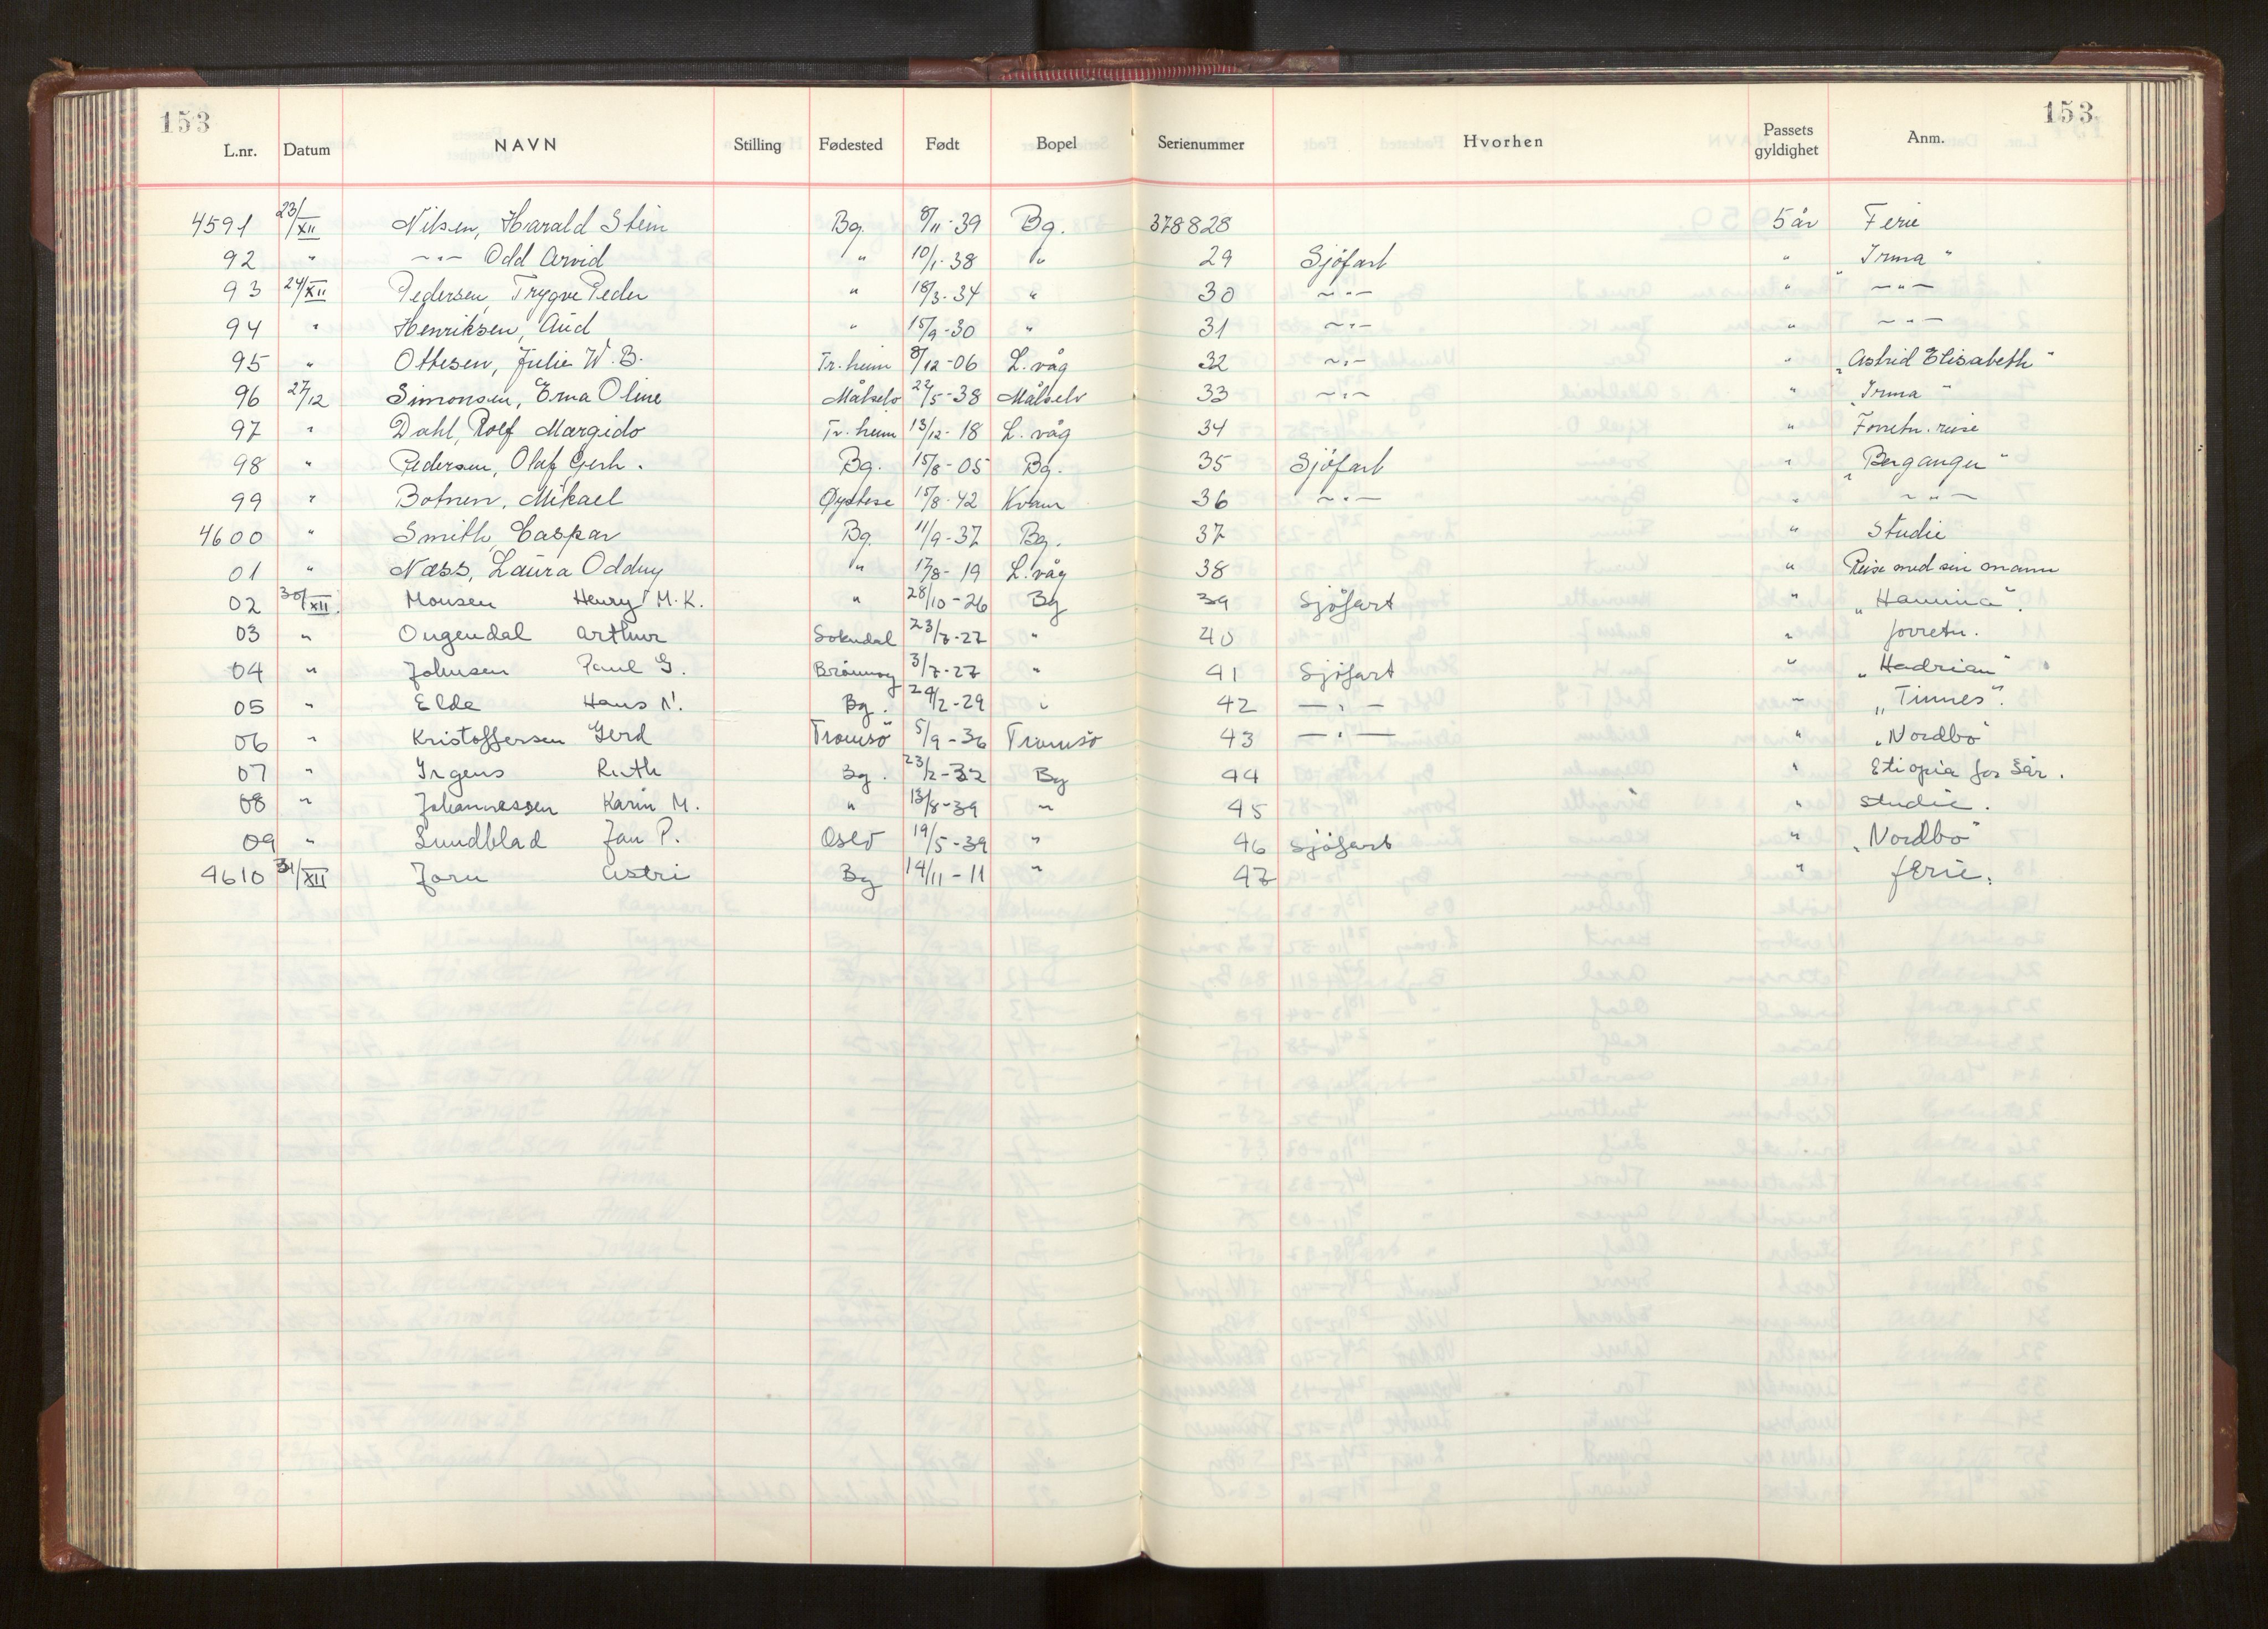 153 153
L.nr. Datum NAVN Stilling Fødested Født Bopel Serienummer Hvorhen Passets gyldighet Anm.
4591 23/XII Nilsen, Harald Stein Bg. 8/11-39 Bg. 378828 5 år Ferie
92 " —"— Odd Arvid " 10/1-38 " 29 Sjøfart " "Irma"
93 24/XII Pedersen, Trygve Peder " 18/3-34 " 30 —"— " —"—
94 " Henriksen, Aud " 15/9-30 " 31 —"— " —"—
95 " Ottesen, Julie W. B. Tr.heim 8/12-06 L.våg 32 —"— " "Astrid Elisabeth"
96 27/12 Simonsen, Erna Oline Målselv 22/5-38 Målselv 33 —"— " "Irma"
97 " Dahl, Rolf Margido Tr.heim 13/12-18 L.våg 34 " Forretn. reise
98 " Pedersen, Olaf Gerh. Bg. 15/8-05 Bg. 35 Sjöfart " "Berganger"
99 " Botnen, Mikael Øystese 15/8-42 Kvam 36 —"— " —"—
4600 " Smith, Caspar Bg. 11/9-37 Bg. 37 " Studie
01 " Næss, Laura Oddny " 17/8-19 L.våg 38 " Reise med sin mann
02 30/XII Monsen Henry M.K. " 28/10-26 Bg 39 Sjöfart " "Hamina".
03 " Ougendal Arthur Sokndal 23/7-27 " 40 " forretn.
04 " Johnsen Paul G. Brönnøy 3/7-27 " 41 Sjöfart " "Hadrian"
05 " Elde Hans N. Bg. 24/2-29 " 42 —"— " "Tinnes".
06 " Kristoffersen Gerd Tromsö 5/9-36 Tromsö 43 —"— " "Nordbo"
07 " Irgens Ruth Bg. 23/2-32 Bg 44 " Etiopia for 5 år.
08 " Johannessen Karin M. " 13/8-39 " 45 " studie.
09 " Lundblad Jan P. Oslo 19/5-39 " 46 sjöfart " "Nordbo"
4610 31/XII Joru Astri Bg 14/11-11 " 47 " ferie.